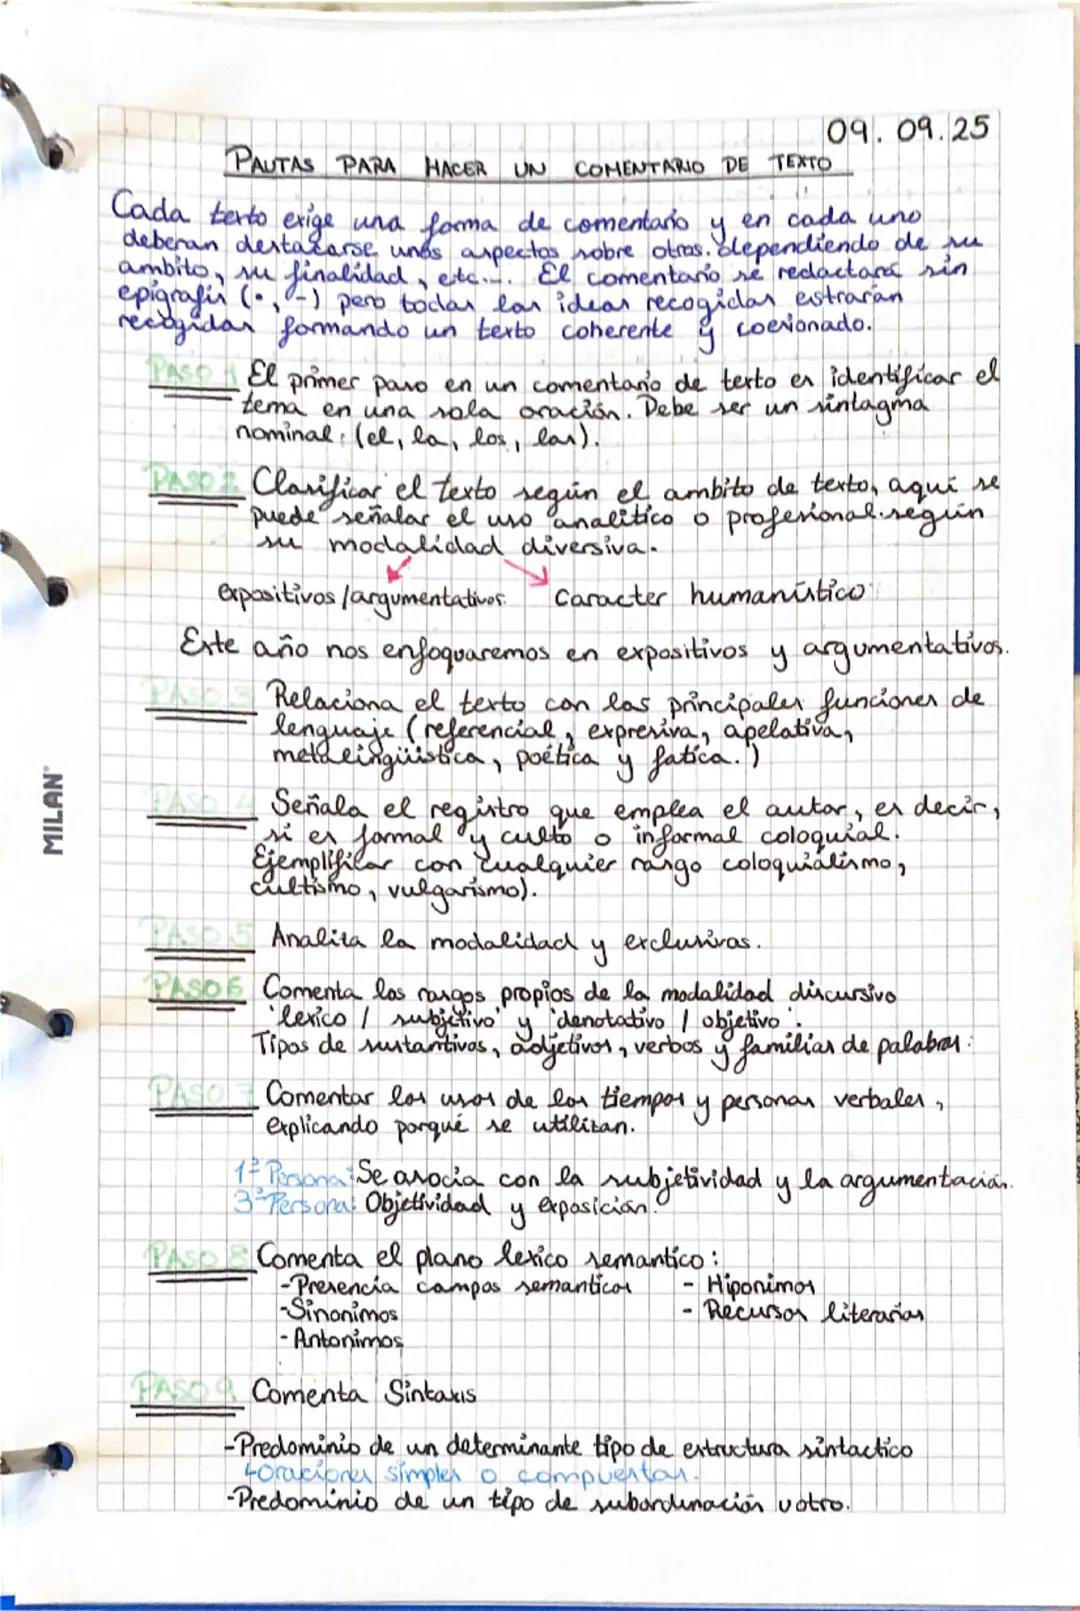 09.09.25
PAUTAS PARA HACER UN COMENTARIO DE TEXTO
Cada texto exige una forma de comentario y en cada uno
deberan destacarse unos aspectos sobre otros. dependiendo de su
ambito, su finalidad, etc... El comentario se redactará sin
epigrafis (•, -) pero todas las ideas recogidas estraran
recogidas formando un texto coherente y coesionado.
PASO 1 El primer paso en un comentario de texto es identificar el
tema en una sola oración. Debe ser un sintagma
nominal: (el, la, los, las).
PASO 2 Clasificar el texto según el ambito de texto, aqui se
puede señalar el uso analitico o profesional. según
su modalidad diversiva.
expositivos/argumentativos. Caracter humanístico
Este año nos enfoquaremos en expositivos y argumentativos.
PASO 3 Relaciona el texto con las principales funciones de
lenguaje (referencial, expresiva, apelativa,
metaleingüistica, poética y fatica.)
PASO 4 Señala el registro que emplea el autor, es decir,
si es formal y culto o informal coloquial.
Ejemplificar con cualquier rasgo coloquialismo,
cultismo, vulgarismo).
PASO 5 Analita la modalidad y exclusivas.
PASO 6 Comenta los rasgos propios de la modalidad discursivo
'lexico / subjetivo' y 'denotativo / objetivo'.
Tipos de sustantivos, adjetivos, verbos y familias de palabras:
PASO 7 Comentar los usos de los tiempos y personas verbales,
explicando porqué se utilizan.
1ª Persona: Se asocia con la subjetividad y la argumentación.
3ª Persona: Objetividad y exposición.
PASO 8 Comenta el plano lexico semantico:
-Presencia campos semanticos - Hiponimos
-Sinonimos - Recursos literarios
-Antonimos
PASO 9 Comenta Sintaxis
-Predominio de un determinante tipo de estructura sintactico
↳oraciones simples o compuestas.
-Predominio de un tipo de subordinación u otro.
MILAN